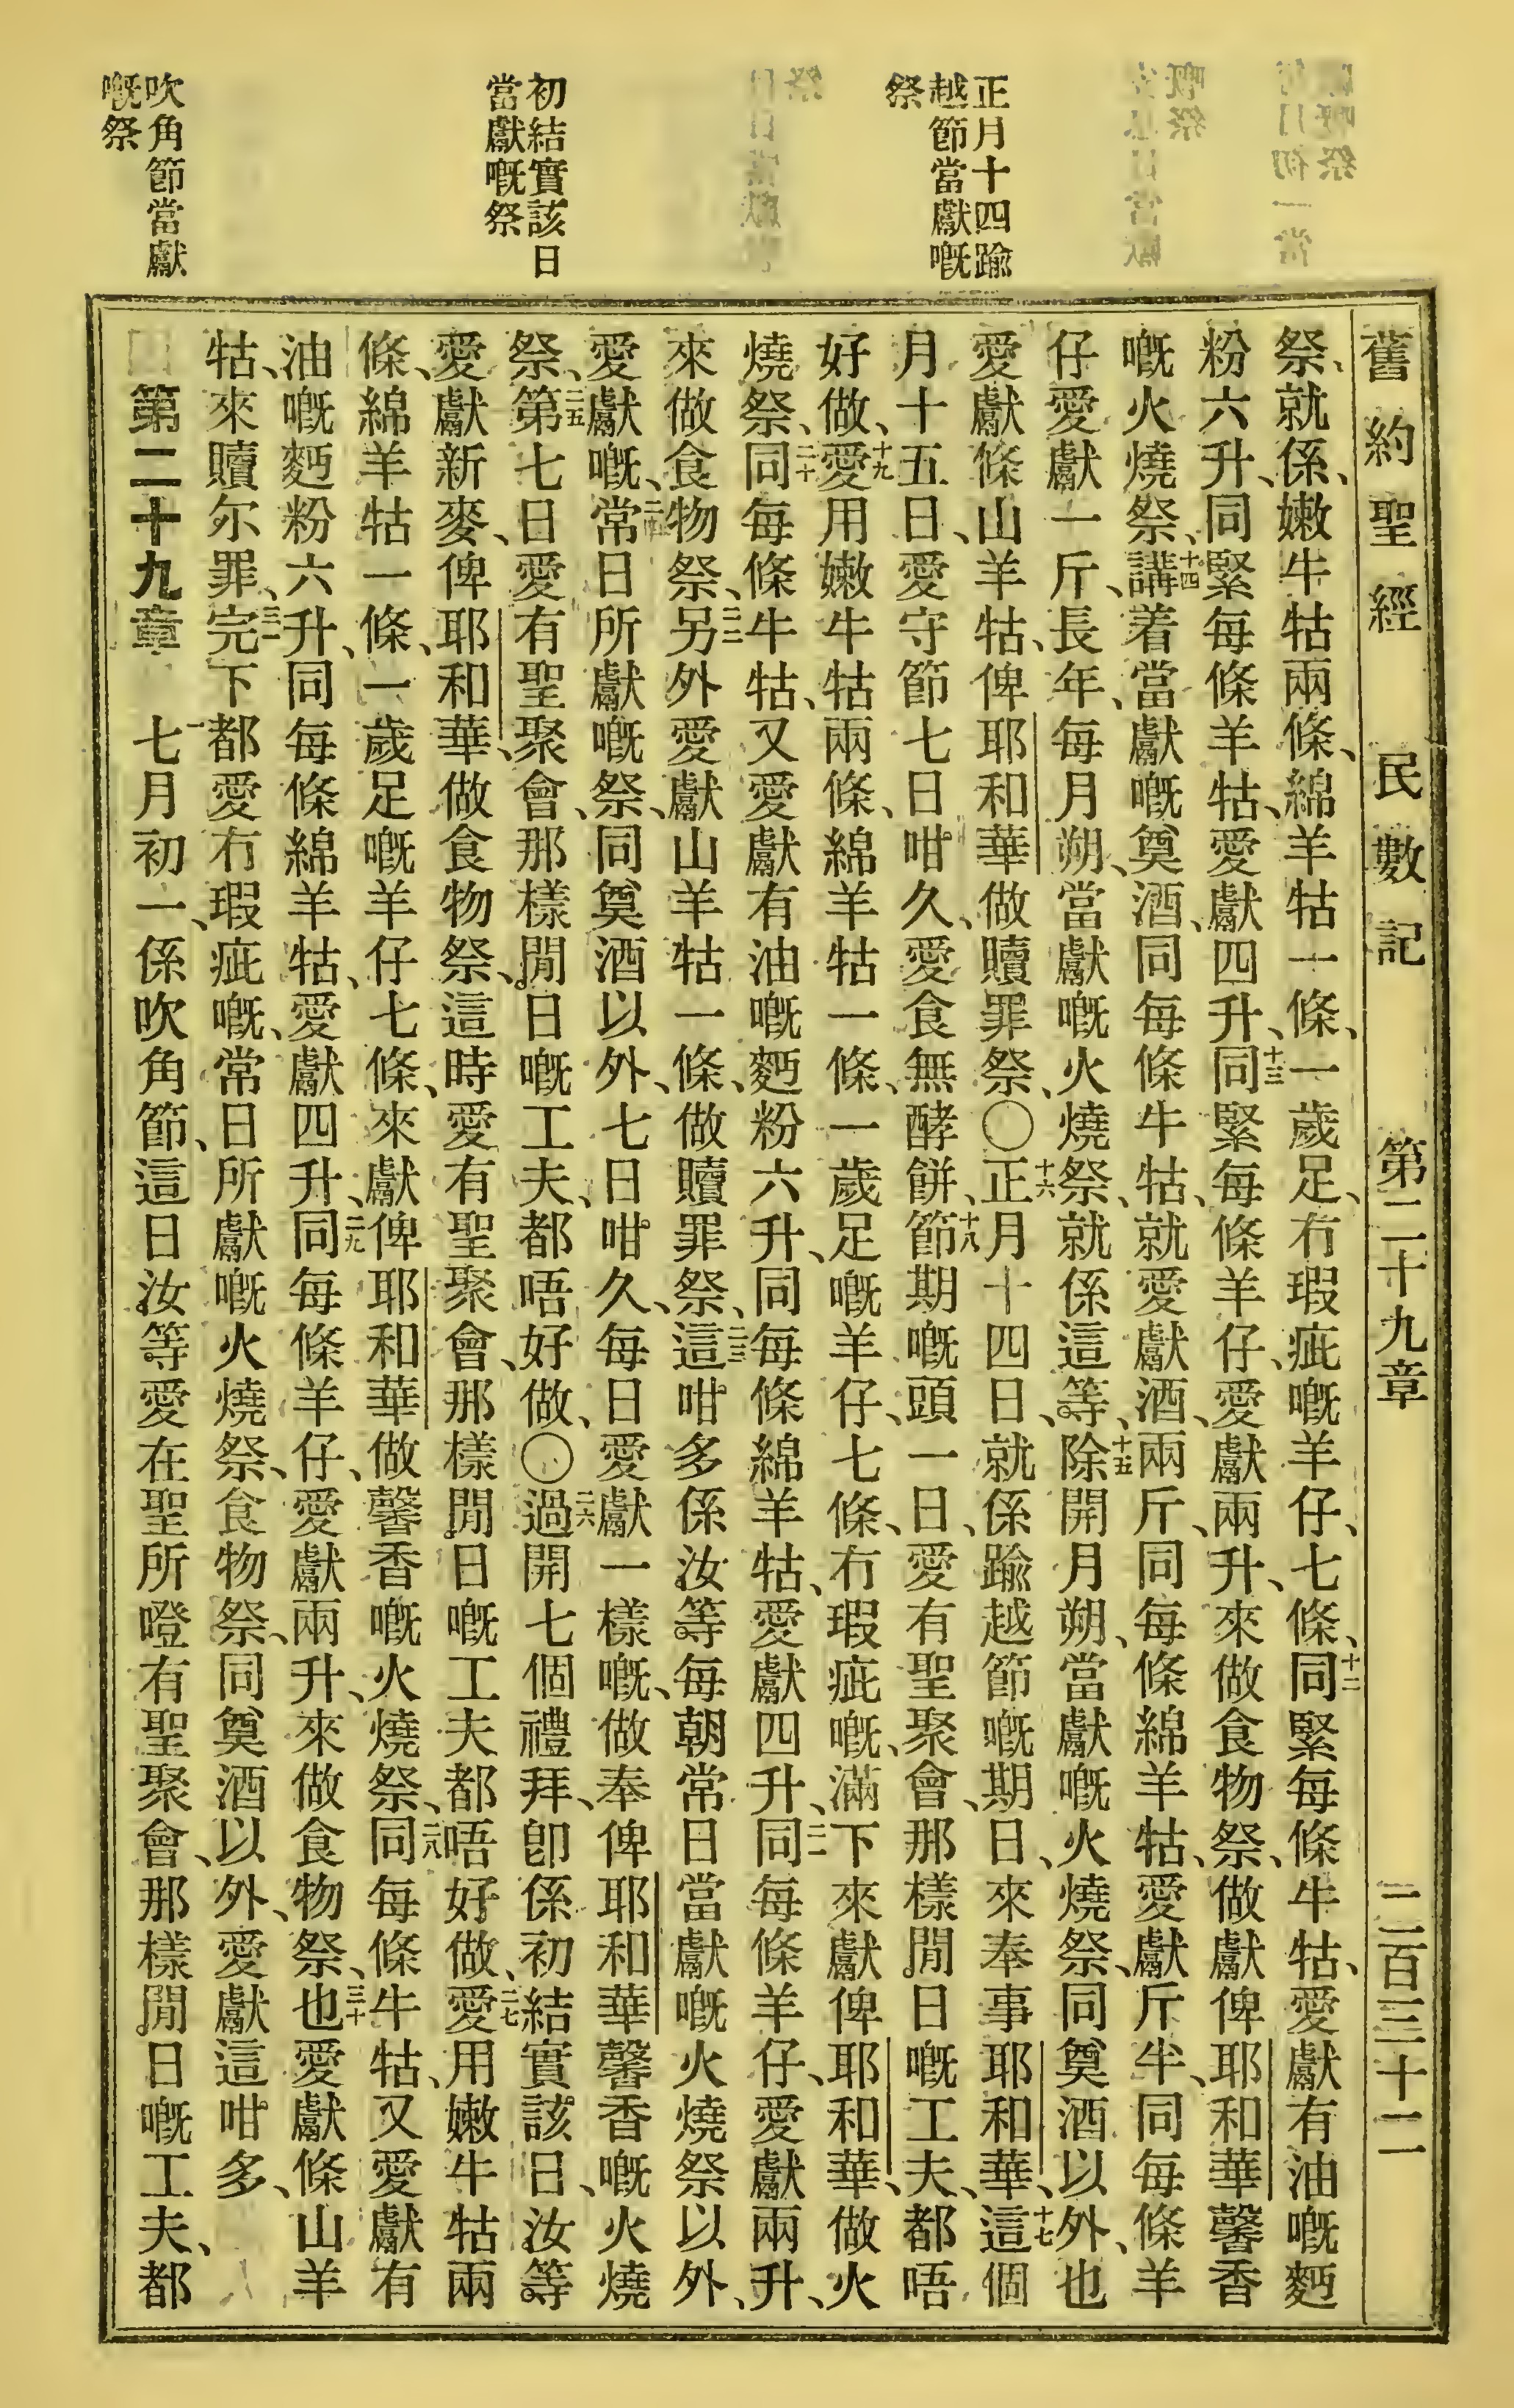 正月十四踰
越節當獻嘅
祭
初結實該日
當獻嘅祭
吹角節當獻
嘅祭
舊約聖經 民數記 第二十九章 二百三十二
祭、就係、嫩牛牯兩條、綿羊牯一條、一歲足、冇瑕疵嘅羊仔、七條、十二同緊每條牛牯、愛獻有油嘅麪
粉六升、同緊每條羊牯、愛獻四升、十三同緊每條羊仔、愛獻兩升、來做食物祭、做獻俾耶和華馨香
嘅火燒祭、十四講着當獻嘅奠酒、同每條牛牯、就愛獻酒、兩斤、同每條綿羊牯、愛獻斤半、同每條羊
仔愛獻一斤、長年、每月朔、當獻嘅火燒祭、就係這等、十五除開月朔、當獻嘅火燒祭、同奠酒以外、也
愛獻條山羊牯、俾耶和華做贖罪祭、〇十六正月十四日、就係踰越節嘅期日、來奉事耶和華、十七這個
月十五日、愛守節七日咁久、愛食無酵餅、十八節期嘅頭一日、愛有聖聚會、那樣閒日嘅工夫、都唔
好做、十九愛用嫩牛牯兩條、綿羊牯一條、一歲足嘅羊仔、七條、冇瑕疵嘅、滿下來獻俾耶和華、做火
燒祭、二十同每條牛牯、又愛獻有油嘅麪粉六升、同每條綿羊牯、愛獻四升、二一同每條羊仔、愛獻兩升、
來做食物祭、二二另外愛獻山羊牯一條、做贖罪祭、二三這咁多係汝等每朝常日當獻嘅火燒祭以外、
愛獻嘅、二四常日所獻嘅祭、同奠酒以外、七日咁久、每日愛獻一樣嘅、做奉俾耶和華馨香嘅火燒
祭、二五第七日愛有聖聚會、那樣閒日嘅工夫、都唔好做、〇二六過開七個禮拜、卽係初結實該日、汝等
愛獻新麥、俾耶和華、做食物祭、這時愛有聖聚會、那樣閒日嘅工夫都唔好做、二七愛用嫩牛牯兩
條、綿羊牯一條、一歲足嘅羊仔七條、來獻俾耶和華做馨香嘅火燒祭、二八同每條牛牯、又愛獻有
油嘅麪粉六升、同每條綿羊牯、愛獻四升、二九同每條羊仔、愛獻兩升、來做食物祭、三十也愛獻條山羊
牯、來贖尔罪、三一完下都愛冇瑕疵嘅、常日所獻嘅火燒祭、食物祭、同奠酒以外、愛獻這咁多、
第二十九章 一七月初一、係吹角節、這日汝等愛在聖所噔有聖聚會、那樣閒日嘅工夫、都